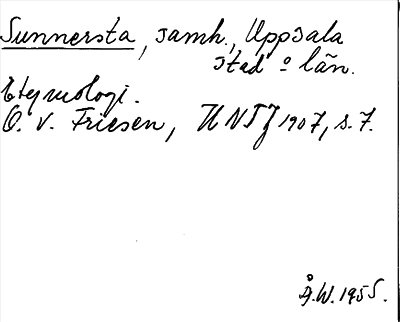 Sunnersta, samh., Uppsala
stad o län.
Etymologi.
O. v. Friesen, UNT 1907, s. 7.
Å.W. 1955.